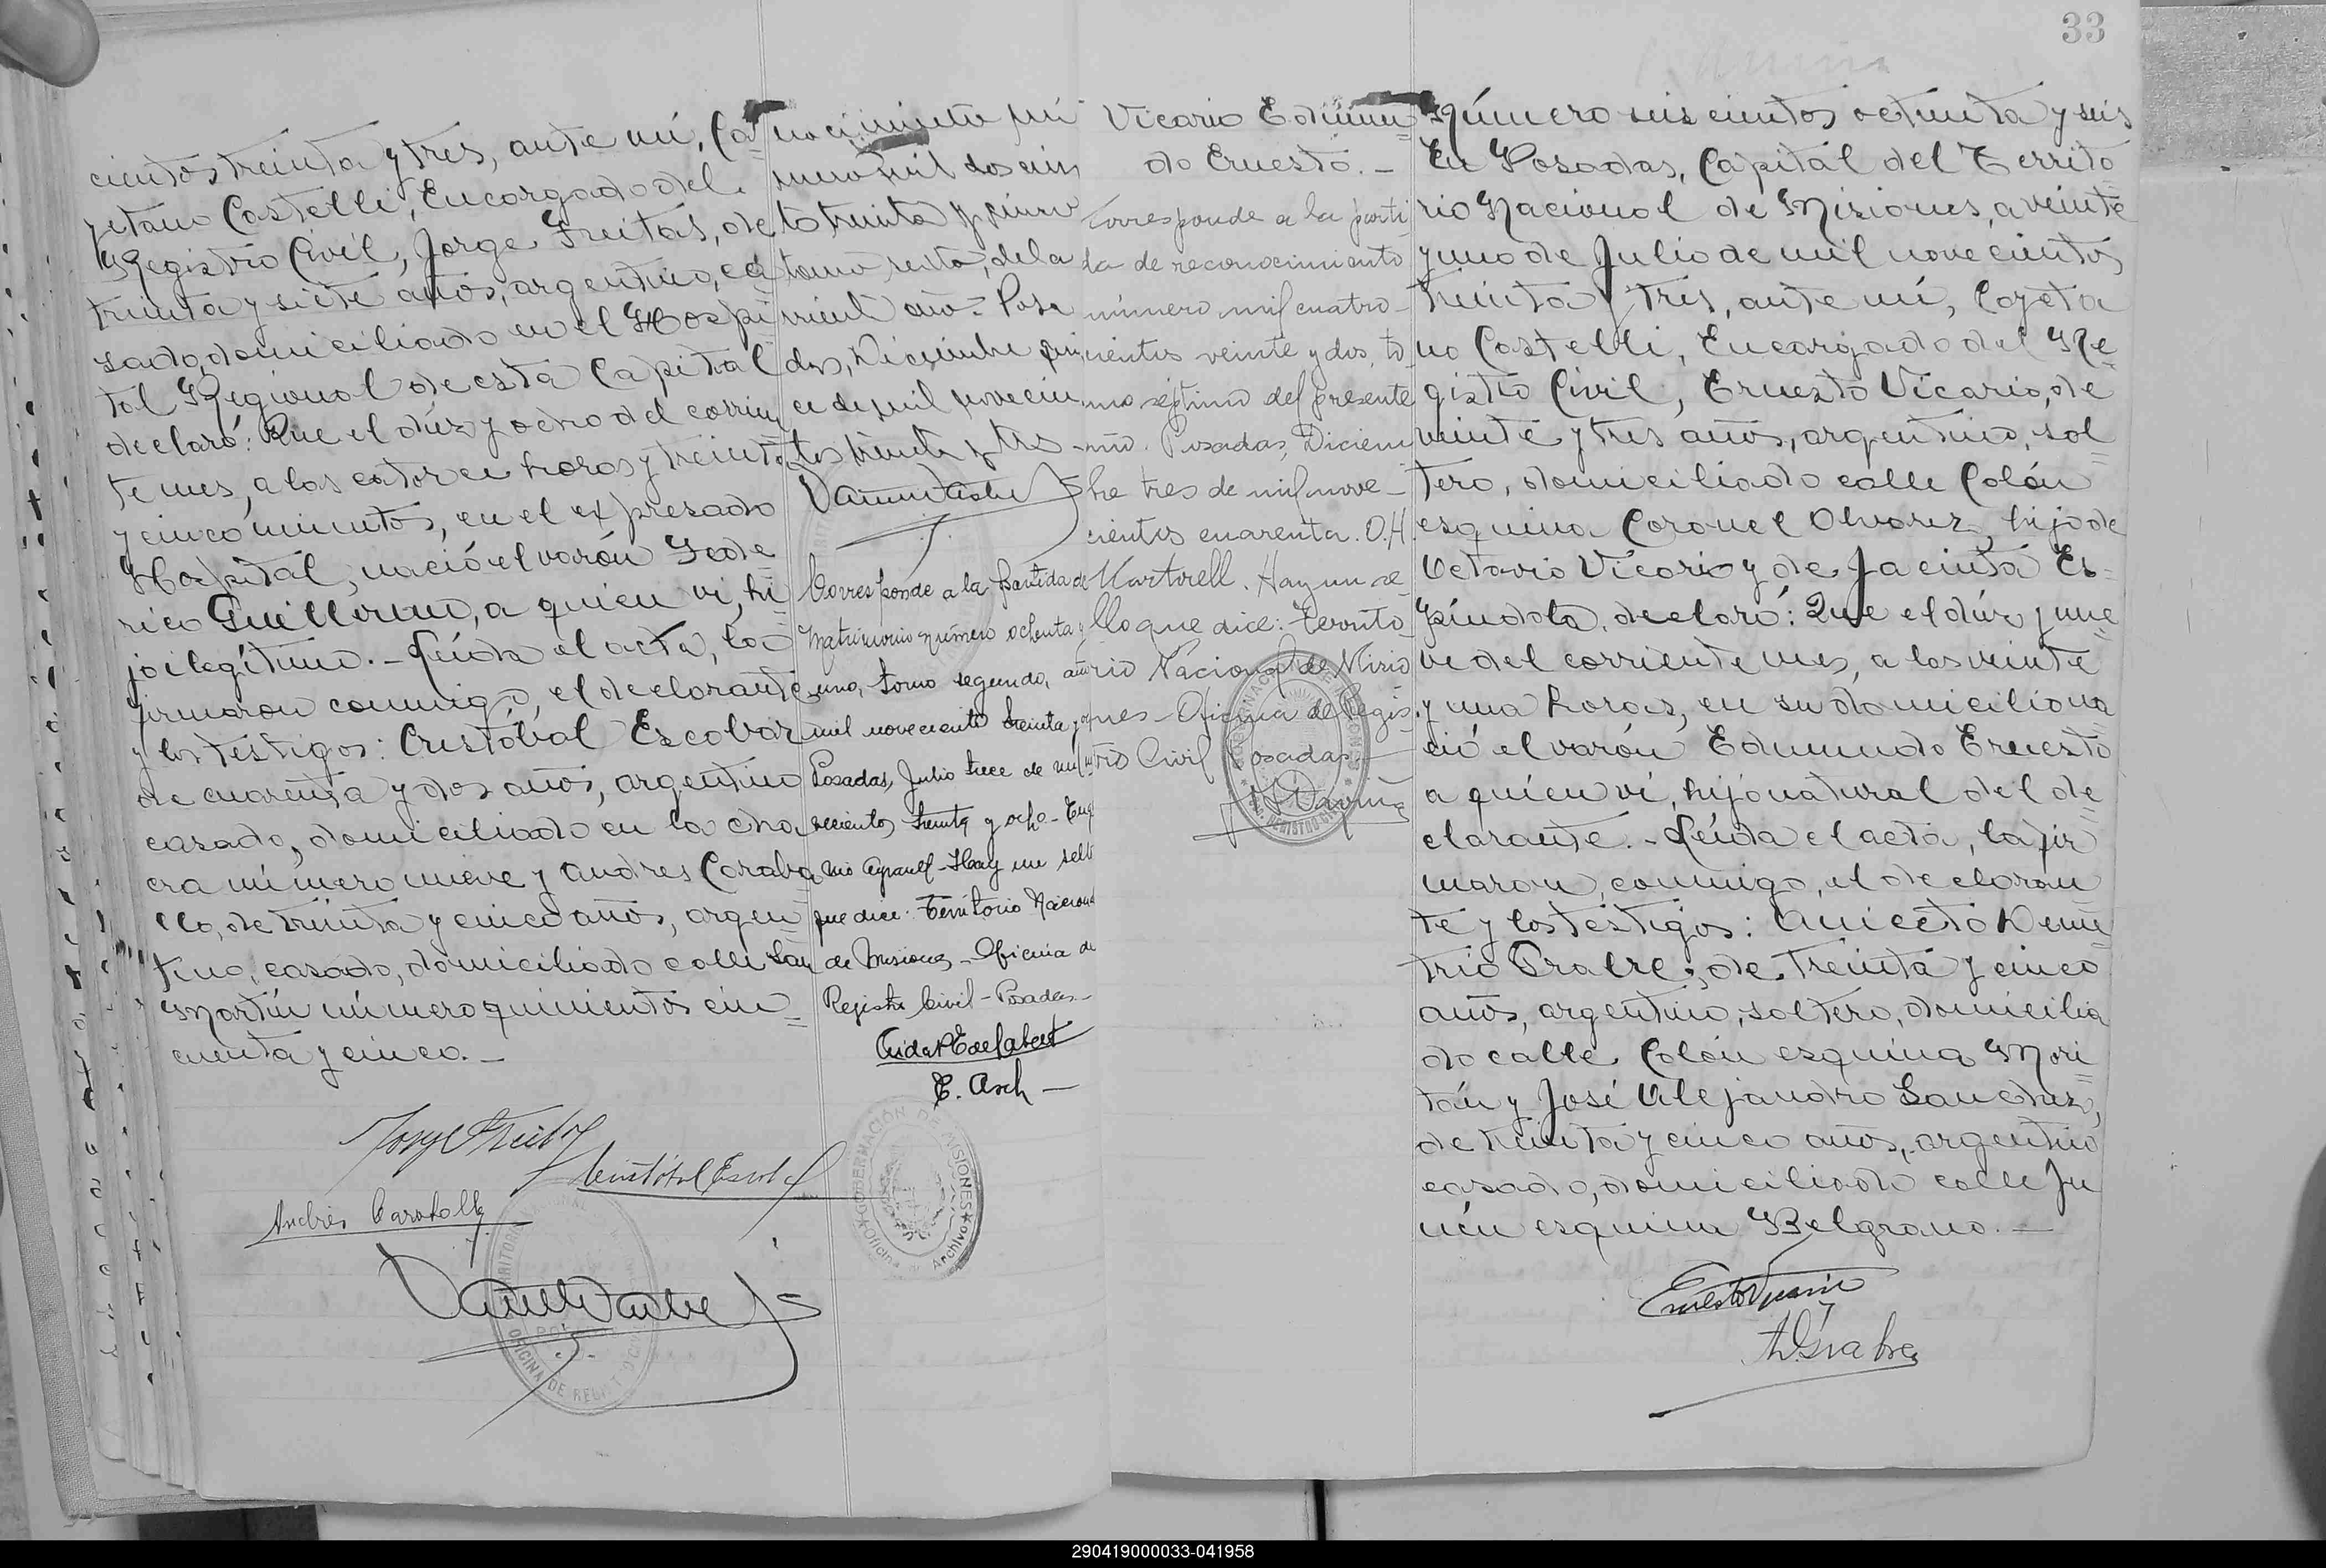 cientos treinta y tres, ante mí, Ca=
yetano Castelli, Encargado del
Registro Civil, Jorge Freitas, de
treinta y siete años, argentino, ca
sado, domiciliado en el Hospi
tal Regional de esta Capital
declaró: Que el diez y ocho del corrien
te mes, a las catorce horas y treinta
y cinco minutos, en el expresado
Hospital, nació el varón Fede=
rico Guillermo, a quien vi, hi
jo ilegítimo.- Leída el acta, la
firmaron conmigo, el declarante
y los testigos: Cristóbal Escobar
de cuarenta y dos años, argentino
casado, domiciliado en la cha
cra número nueve y Andres Caraba
llo, de treinta y cinco años, argen=
tino, casado, domiciliado calle San
Martín número quinientos cin=
cuenta y cinco.-
Jorge Freitas
Cristóbal Escobar
Andrés Caraballo
nocimiento nú
mero mil dos cien
to treinta y cinco
tomo sexto, de la
año.= Posa
das, Diciembre quin
ce de mil novecien
tos treinta y tres
Corresponde a la partida de
matrimonio número ochenta y
uno, tomo segundo, año
mil novecientos treinta y
Posadas, Julio trece de mil no
vecientos treinta y ocho- Eug
nio - Hay un sello
que dice: Territorio Nacional
de Misiones - Oficina de
Registro Civil - Posadas-
E. Asch -
GOBERNACIÓN DE MISIONES
Oficina Archivo
33
Vicario Edmun=
do Ernesto.-
Corresponde a la parti
da de reconocimiento
número mil cuatro-
cientos veinte y dos, to
mo séptimo del presente
año. Posadas, Diciem
bre tres de mil nove-
cientos cuarenta. O.H.
Martrell. Hay un se
llo que dice: Territo-
rio Nacional de Misio
nes - Oficina de Regis-
tro Civil Posadas-
Número seis cientos ochenta y seis
En Posadas, Capital del Territo=
rio Nacional de Misiones, a veinte
y uno de Julio de mil novecientos
treinta y tres, ante mí, Cayeta
no Castelli, Encargado del Re=
gistro Civil, Ernesto Vicario, de
veinte y tres años, argentino, sol=
tero, domiciliado calle Colón
esquina Coronel Alvarez, hijo de
Octavio Vicario y de Jacinta Es=
píndola, declaró: Que el diez y nue=
ve del corriente mes, a las veinte
y una horas, en su domicilio na
ció el varón Edmundo Ernesto
a quien vi, hijo natural del de=
clarante.- Leída el acta, la fir
maron, conmigo, el declaran
te y los testigos: Aniceto Deme=
trio Grabre, de treinta y cinco
años, argentino, soltero, domicilia
do calle Colón esquina Mori=
tán y José Alejandro Sanchez,
de treinta y cinco años, argentino
casado, domiciliado calle Ju
nín esquina Belgrano.-
Ernesto Vicario
A D Grabre
290419000033-041958